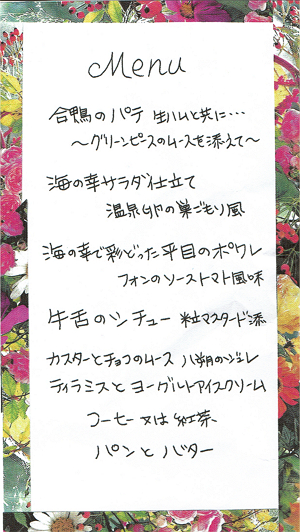 Menu
合鴨のパテ 生ハムと共に…
〜グリーンピースのムースを添えて〜
海の幸サラダ仕立て
温泉卵の巣ごもり風
海の幸で彩どった平目のポワレ
フォンのソーストマト風味
牛舌のシチュー 粒マスタード添
カスターとチョコのムース 八朔のジュレ
ティラミスとヨーグルトアイスクリーム
コーヒー又は紅茶
パンとバター